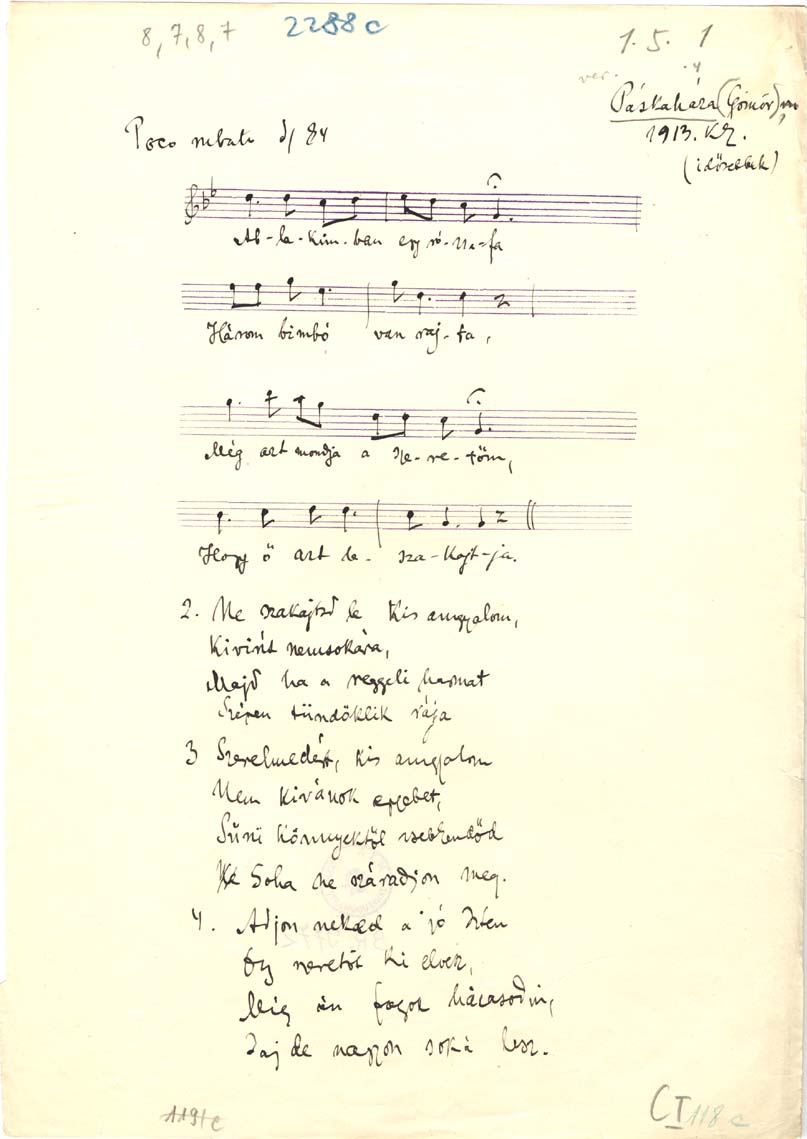 8, 7, 8, 7
2288c
1. 5. 1
ver.
4
Páskaháza (Gömör)
1913. KZ.
(idősebbek)
Poco rubato ♩ 84
Ab-la-kim-ban egy ró-zsa-fa
Három bimbó van raj-ta,
Még azt mondja a sze-re-tőm,
Hogy ő azt le-sza-kajt-ja.
2. Ne szakajtsd le kis angyalom,
Kivirít nemsokára,
Majd ha a reggeli harmat
Szépen tündöklik rája
3 Szerelmedért, kis angyalom
Nem kivánok egyebet,
Sűrű könnyektől zsebkendőd
Soha ne száradjon meg.
4. Adjon neked a jó Isten
Egy szeretőt ki elvez,
Míg én fogok házasodni,
Jaj de nagyon soká lesz.
1191c
CI 118c